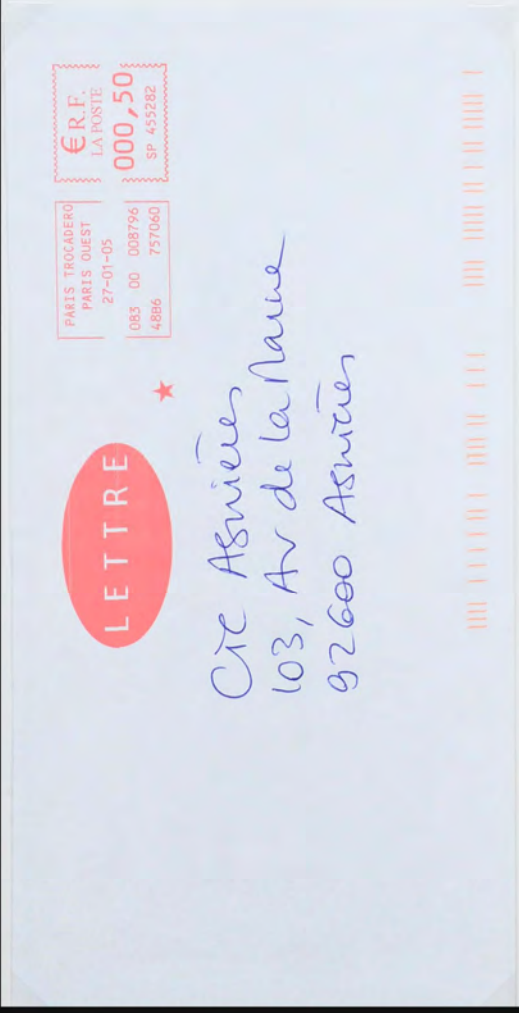 PARIS TROCADERO
PARIS OUEST
27-01-05
083 00 008796
4886 757060
€ R.F.
LA POSTE
000,50
SP 455282
LETTRE
CIC Asnières
103, Av de la Marne
92600 Asnières